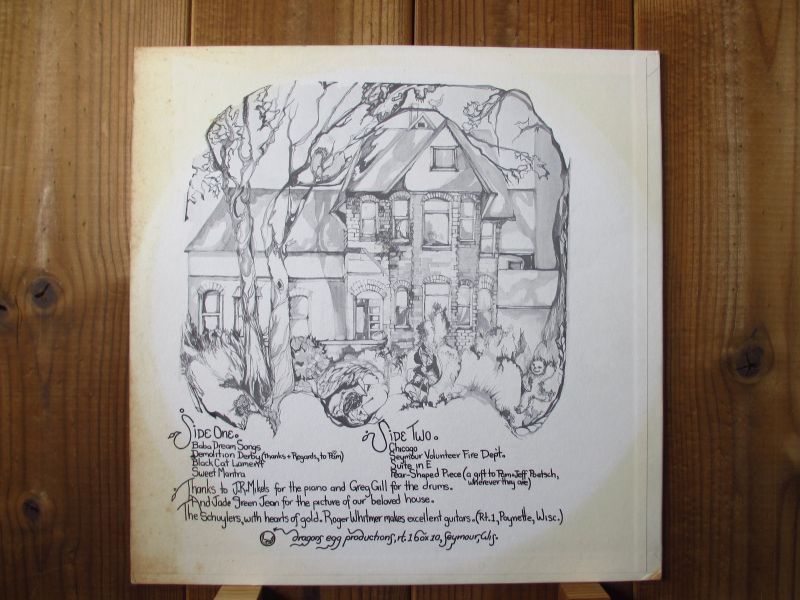 Side One.
Baba Dream Songs
Demolition Derby (thanks + Regards, to Pam)
Black Cat Lament
Sweet Mantra
Side Two.
Chicago
Seymour Volunteer Fire Dept.
Suite in E
Pear-Shaped Piece (a gift to Pam + Jeff Poetsch,
wherever they are)
Thanks to J.R. Mikels for the piano and Greg Gill for the drums.
And Jade Green Jean for the picture of our beloved house.
The Schuylers, with hearts of gold. Roger Whitmer makes excellent guitars. (Rt. 1, Poynette, Wisc.)
dragons egg productions, rt. 1 box 10, Seymour, Wis.